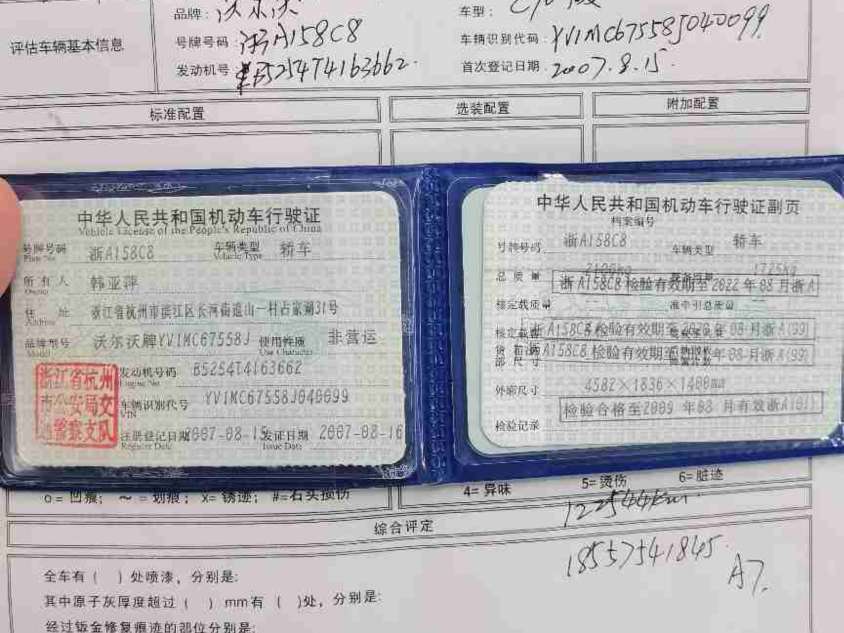 品牌：沃尔沃
车型：C70 敞
评估车辆基本信息
号牌号码：浙A158C8
车辆识别代码：YV1MC67558J040099
发动机号：B5254T4163662
首次登记日期：2007.8.15
标准配置
选装配置
附加配置
中华人民共和国机动车行驶证
Vehicle License of the People's Republic of China
号牌号码 浙A158C8 车辆类型 轿车
Plate No. Vehicle Type
所有人 韩亚萍
Owner
住址 浙江省杭州市滨江区长河街道山一村占家湖31号
Address
品牌型号 沃尔沃牌YV1MC67558J 使用性质 非营运
Model Use Character
浙江省杭州市公安局交通警察支队
发动机号码 B5254T4163662
Engine No.
车辆识别代号 YV1MC67558J040099
VIN
注册登记日期 2007-08-15 发证日期 2007-08-16
Register Date Issue Date
中华人民共和国机动车行驶证副页
档案编号
号牌号码 浙A158C8 车辆类型 轿车
总质量 2100kg 1725kg
浙A158C8 检验有效期至2022年08月浙A
核定载质量 -- 准牵引总质量 --
浙A158C8检验有效期至2020年08月浙A(99)
浙A158C8 检验有效期至 年08月浙A(99)
外廓尺寸 4582×1836×1400mm
检验记录 检验合格至2009年08月有效浙A(01)
o=凹痕； ～=划痕； x=锈迹； #=石头损伤
4=异味 5=烫伤 6=脏迹
122544km
综合评定
18557541845
A7.
全车有（ ）处喷漆，分别是：
其中原子灰厚度超过（ ）mm有（ ）处，分别是：
经过钣金修复痕迹的部位分别是：